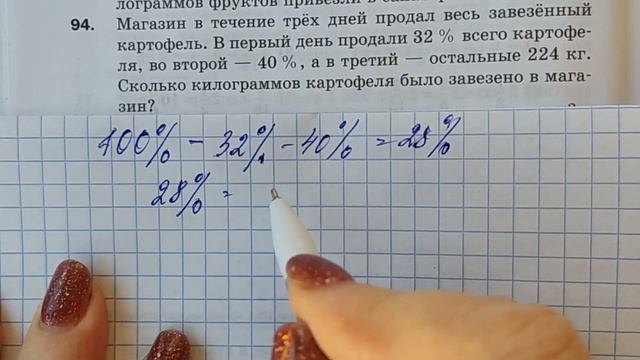 лограммов фруктов привезли в
94. Магазин в течение трёх дней продал весь завезённый
картофель. В первый день продали 32 % всего картофе-
ля, во второй — 40 %, а в третий — остальные 224 кг.
Сколько килограммов картофеля было завезено в мага-
зин?
100% - 32% - 40% = 28%
28% =